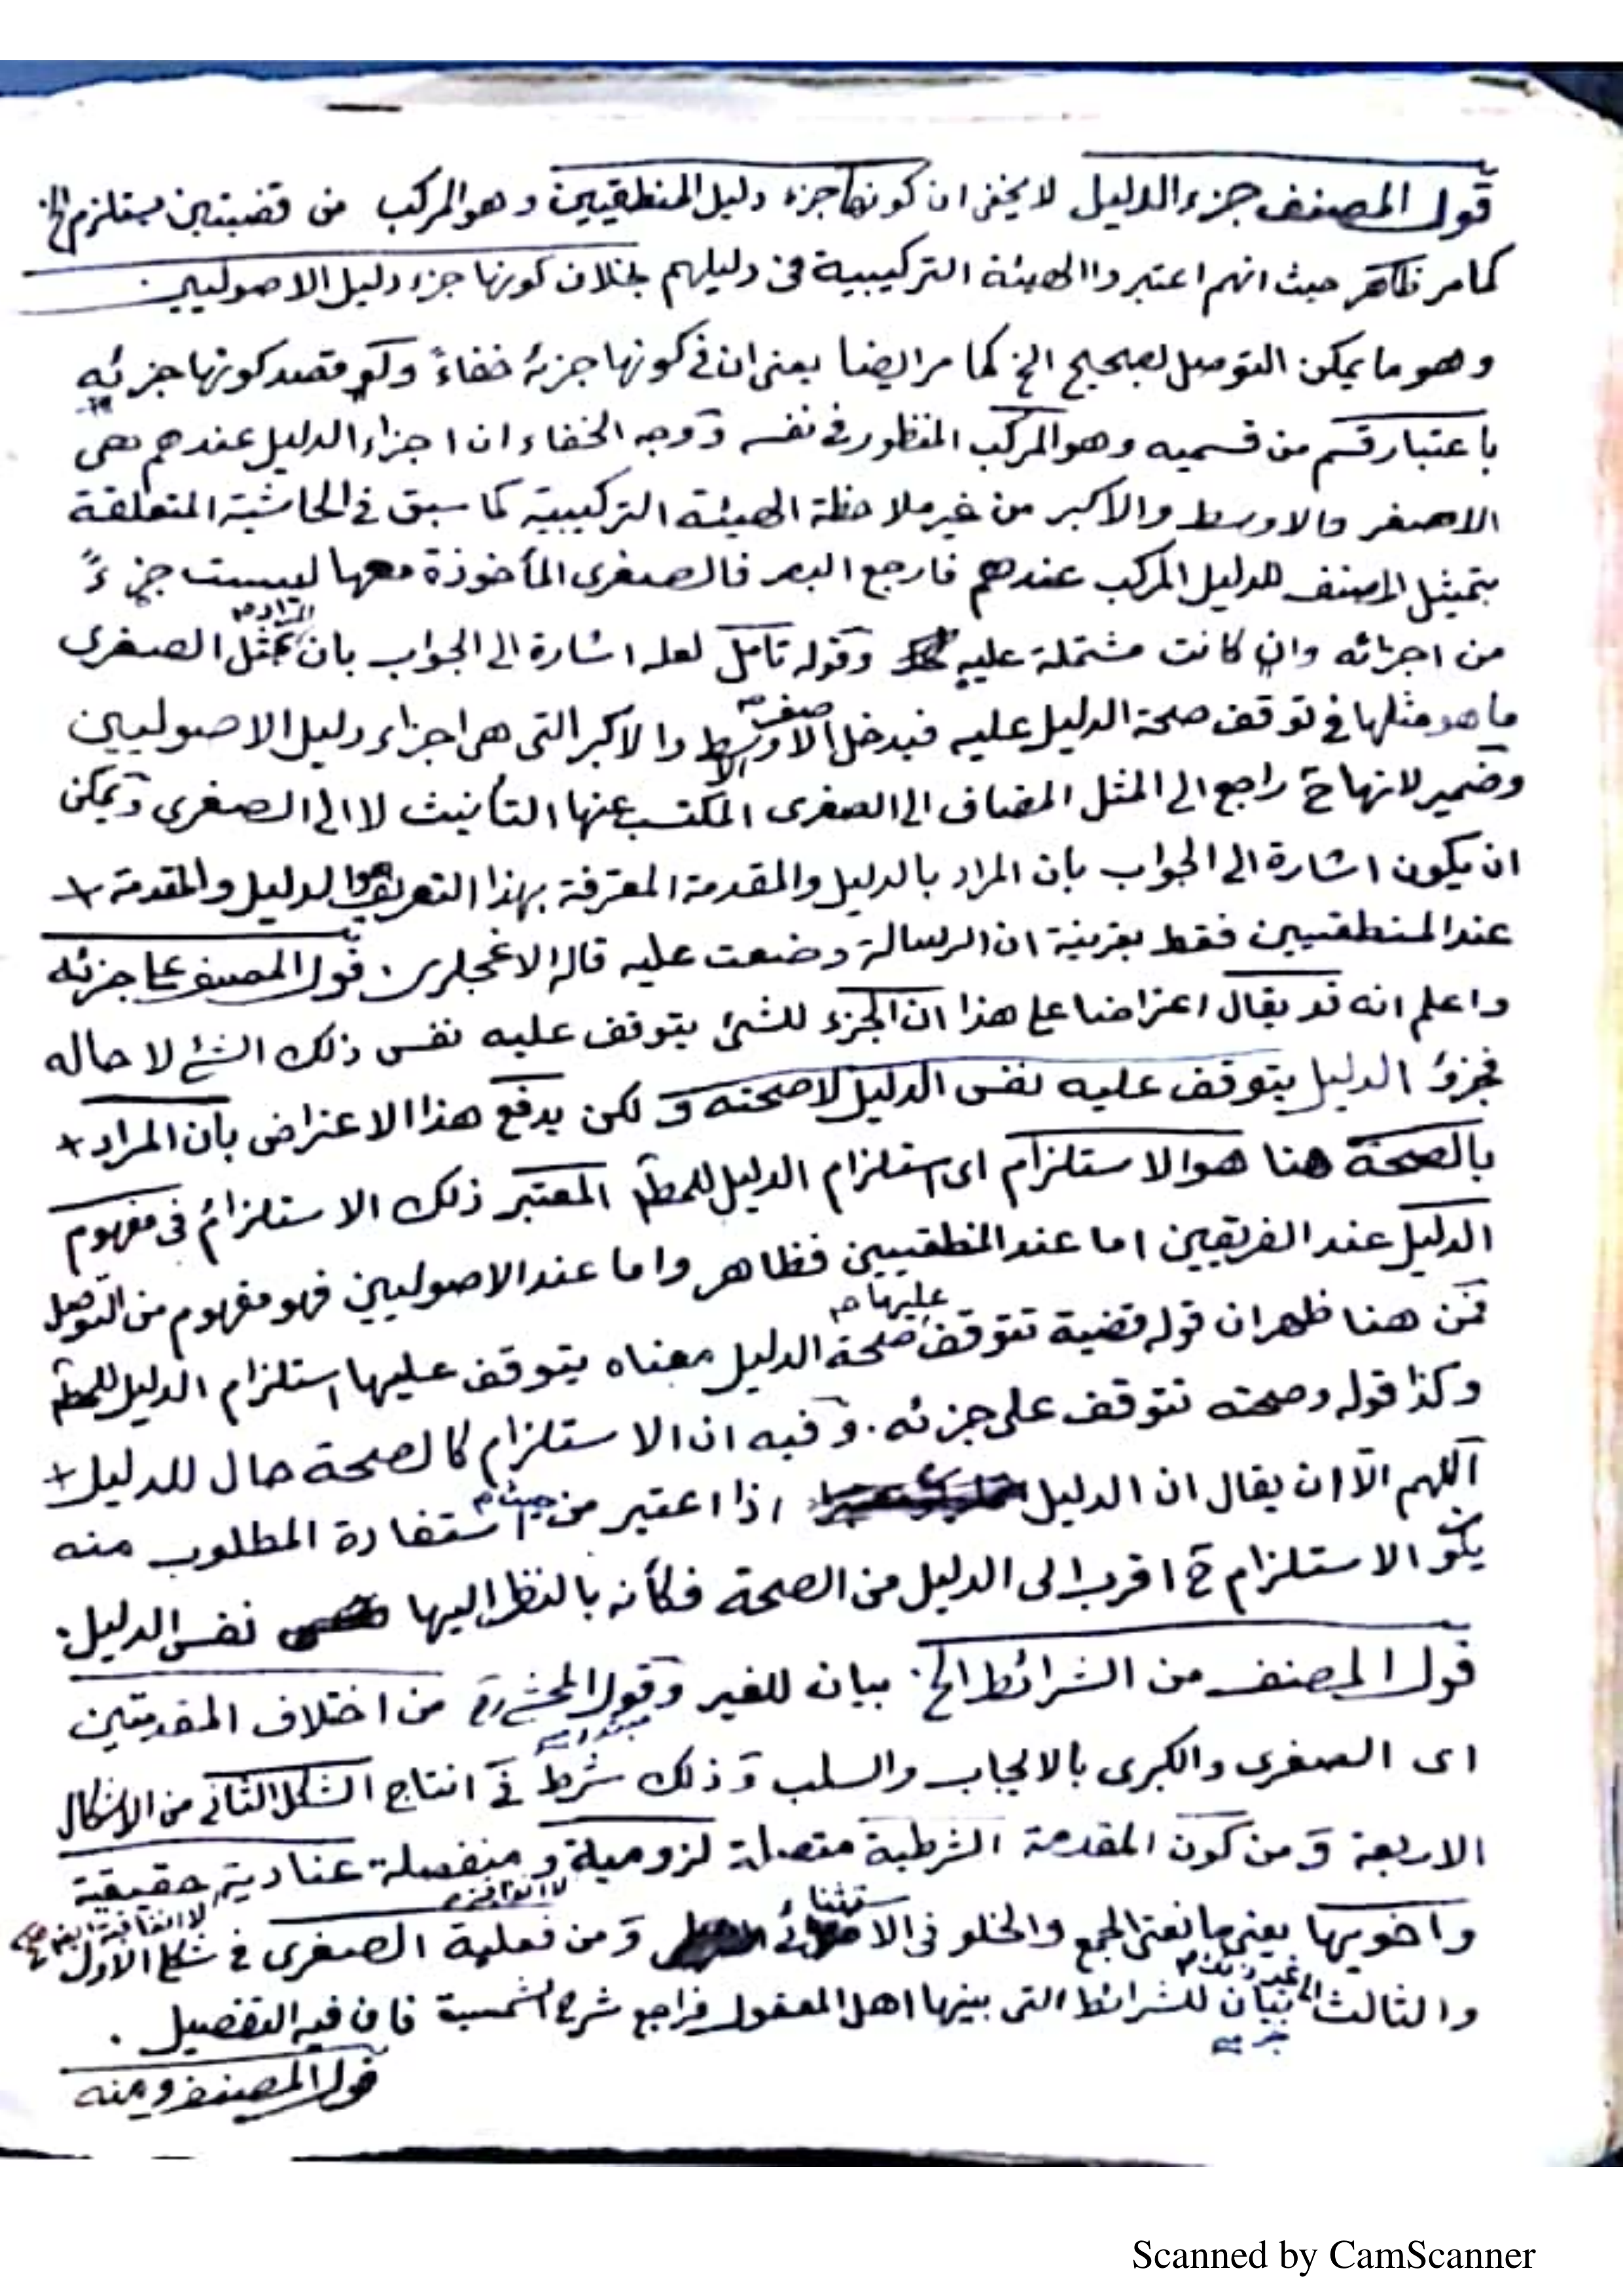 قول المصنف جزء الدليل لا يخفى ان كونها جزء دليل المنطقيين وهو المركب من قضيتين يستلزم الخ
كما مر ظاهر حيث انهم اعتبروا الهيئة التركيبية فى دليلهم بخلاف كونها جزء دليل الاصوليين
وهو ما يمكن التوصل بصحيح الخ كما مر ايضا يعنى ان فى كونها جزئه خفاءً ولو قصد كونها جزئه
باعتبار قسم من قسميه وهو المركب المنظور فى نفسه ووجه الخفاء ان اجزاء الدليل عندهم هى
الاصغر والاوسط والاكبر من غير ملاحظة الهيئة التركيبية كما سبق فى الحاشية المتعلقة
بتمثيل المصنف للدليل المركب عندهم فارجع اليه فالصغرى المأخوذة معها ليست جزءً
من اجزائه وان كانت مشتملة عليه وقوله تأمل لعله اشارة الى الجواب بان المراد بمثل الصغرى
ما هو مثلها فى توقف صحة الدليل عليه فيدخل الاصغر والاوسط والاكبر التى هى اجزاء دليل الاصوليين
وضمير لانها ح راجع الى المثل المضاف الى الصغرى المكتسب عنها التأنيث لا الى الصغرى ويمكن
ان يكون اشارة الى الجواب بان المراد بالدليل والمقدمة المعرفة بهذا التعريف هو الدليل والمقدمة
عند المنطقيين فقط بقرينة ان الرسالة وضعت عليه قاله الاغجلرى . قول المصنف على جزئه
واعلم انه قد يقال اعتراضا على هذا ان الجزء للشئ يتوقف عليه نفس ذلك الشئ لا حاله
فجزؤ الدليل يتوقف عليه نفس الدليل لا صحته و لكن يدفع هذا الاعتراض بان المراد
بالصحة هنا هو الاستلزام اى استلزام الدليل للمط المعتبر ذلك الاستلزام فى مفهوم
الدليل عند الفريقين اما عند المنطقيين فظاهر واما عند الاصوليين فهو مفهوم من التوصل
فمن هنا ظهر ان قوله قضية تتوقف عليها صحة الدليل معناه يتوقف عليها استلزام الدليل للمط
وكذا قوله وصحته تتوقف على جزئه . وفيه ان الاستلزام كالصحة حال للدليل
اللهم الا ان يقال ان الدليل اذا اعتبر من حيث استفادة المطلوب منه
يكون الاستلزام ح اقرب الى الدليل من الصحة فكأنه بالنظر اليها نفس الدليل .
قول المصنف من الشرائط الخ . بيان للغير وقول المحشى من اختلاف المقدمتين
مبتدا
اى الصغرى والكبرى بالايجاب والسلب وذلك شرط فى انتاج الشكل الثانى من الاشكال
الاربعة ومن كون المقدمة الشرطية متصلة لزومية ومنفصلة عنادية حقيقية
لا اتفاقية
واخويها يعنى مانعتى الجمع والخلو فى الاستثنائى ومن فعلية الصغرى فى شكل الاول
والثالث الى غير ذلك بيان للشرائط التى بينها اهل المعقول فراجع شرح الشمسية فان فيه التفصيل .
خبر
قول المصنف ومنه
Scanned by CamScanner